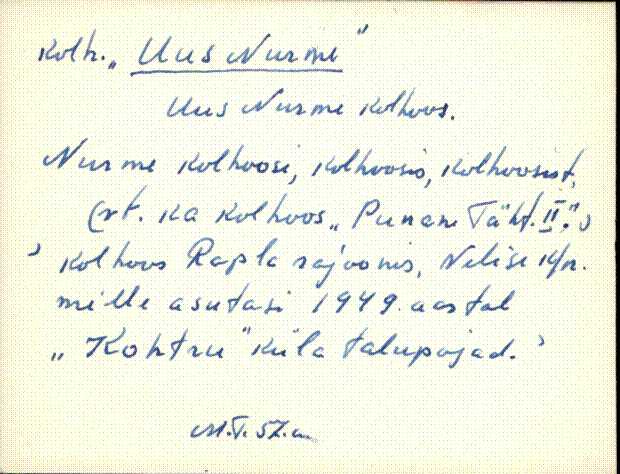 Kolh. „Uus Nurme"
Uus Nurme kolhoos.
Nurme kolhoosi, kolhoosis, kolhoosist,
(vt. ka kolhoos „Punane Täht II.")
' kolhoos Rapla rajoonis, Velise k/n.
mille asutasi 1949. aastal
„Kohtru" küla talupojad. '
M.T. 57.a.